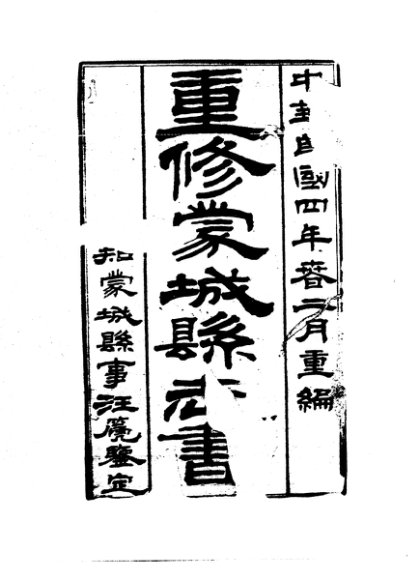 中華民國四年春二月重編
重修蒙城縣志書
知蒙城縣事汪篪鑒定